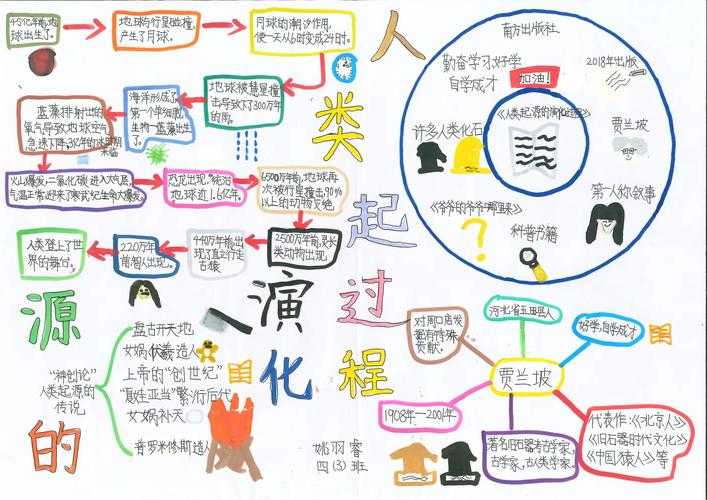 人类起源的演化过程
45亿年前地
球出生了。
地球与行星碰撞,
产生了月球。
月球的潮汐作用,
使一天从6时变成24时。
地球被彗星撞
击导致下了300万年
的雨。
海洋形成了,
第一个单细胞
生物—蓝藻出生
了。
蓝藻排射出的
氧气导致地球空气
火山爆发,二氧化碳进入大气层,
气温正常,迎来了寒武纪生命大爆发。
恐龙出现,统治
地球近1.6亿年。
6500万年前,地球再
次被行星撞击,90%
以上的动物灭绝。
2500万年前,灵长
类动物出现。
440万年前出
现了直立行走
古猿
220万年
前智人出现。
人类登上了世
界的舞台。
南方出版社
勤奋学习好学
自学成才
加油!
2018年出版
《人类起源的演化过程》
许多人类化石
贾兰坡
第一人称叙事
《爷爷的爷爷哪里来》
科普书籍
“神创论”
人类起源的
传说
盘古开天地
女娲伏羲造人
上帝的“创世纪”
“夏娃亚当”繁衍后代
女娲补天
普罗米修斯造人
姚羽睿
四(3)班
贾兰坡
对周口店发
掘有特殊
贡献。
河北省玉田县人
好学,自学成才
1908年—2001年
著名旧石器考古学家,
古学家,古人类学家。
代表作:《北京人》
《旧石器时代文化》
《中国猿人》等